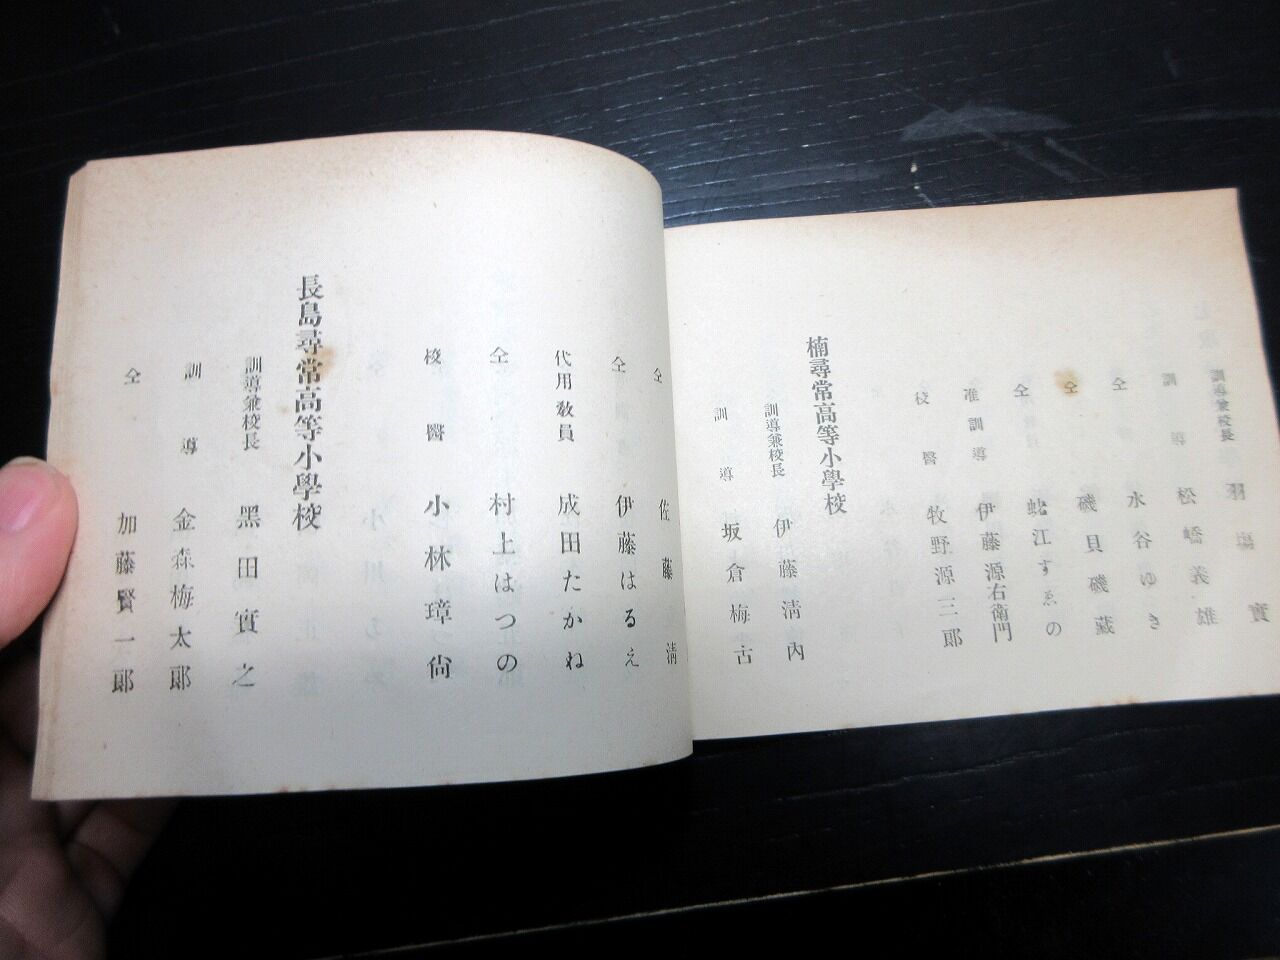 訓導兼校長 羽場實
訓導 松嶠義雄
仝 水谷ゆき
仝 磯貝磯藏
仝 蛯江すゑの
准訓導 伊藤源右衛門
校醫 牧野源一三郎
楠尋常高等小學校
訓導兼校長 伊藤淸內
訓導 坂倉梅吉
仝 佐藤淸
仝 伊藤はるえ
代用敎員 成田たかね
仝 村上はつの
校醫 小林璋尙
長島尋常高等小學校
訓導兼校長 黑田實之
訓導 金森梅太郞
仝 加藤賢一郞